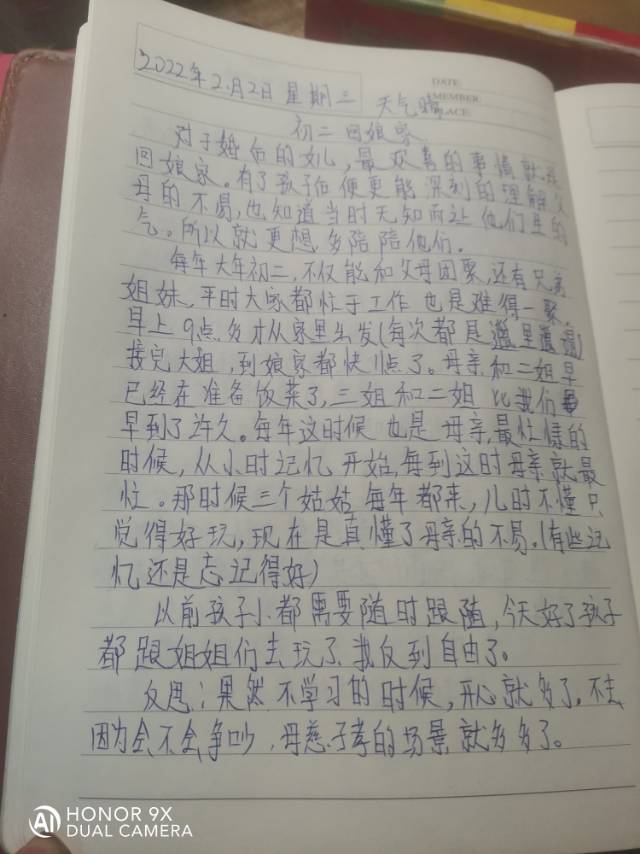 2022年2月2日 星期三 天气晴
DATE
MEMBER
初二回娘家
对于婚后的女儿,最欢喜的事情就是
回娘家。有了孩子后便更能深刻的理解父
母的不易,也知道当时无知而让他们生的
气。所以就更想多陪陪他们。
每年大年初二,不仅能和父母团聚,还有兄弟
姐妹,平时大家都忙于工作也是难得一聚。
早上9点多才从家里出发(每次都是
接完大姐,到娘家都快11点了。母亲和二姐早
已经在准备饭菜了,三姐和二姐比我们
早到了许久。每年这时候也是母亲最忙慌的
时候,从小时记忆开始,每到这时母亲就最
忙。那时候三个姑姑每年都来,儿时不懂只
觉得好玩,现在是真懂了母亲的不易。(有些记
忆还是忘记得好)
以前孩子小都需要随时跟随,今天好了孩子
都跟姐姐们去玩了我反到自由了。
反思:果然不学习的时候,开心就多了。不去
因为会不会争吵,母慈子孝的场景就多多了。
HONOR 9X
AI DUAL CAMERA